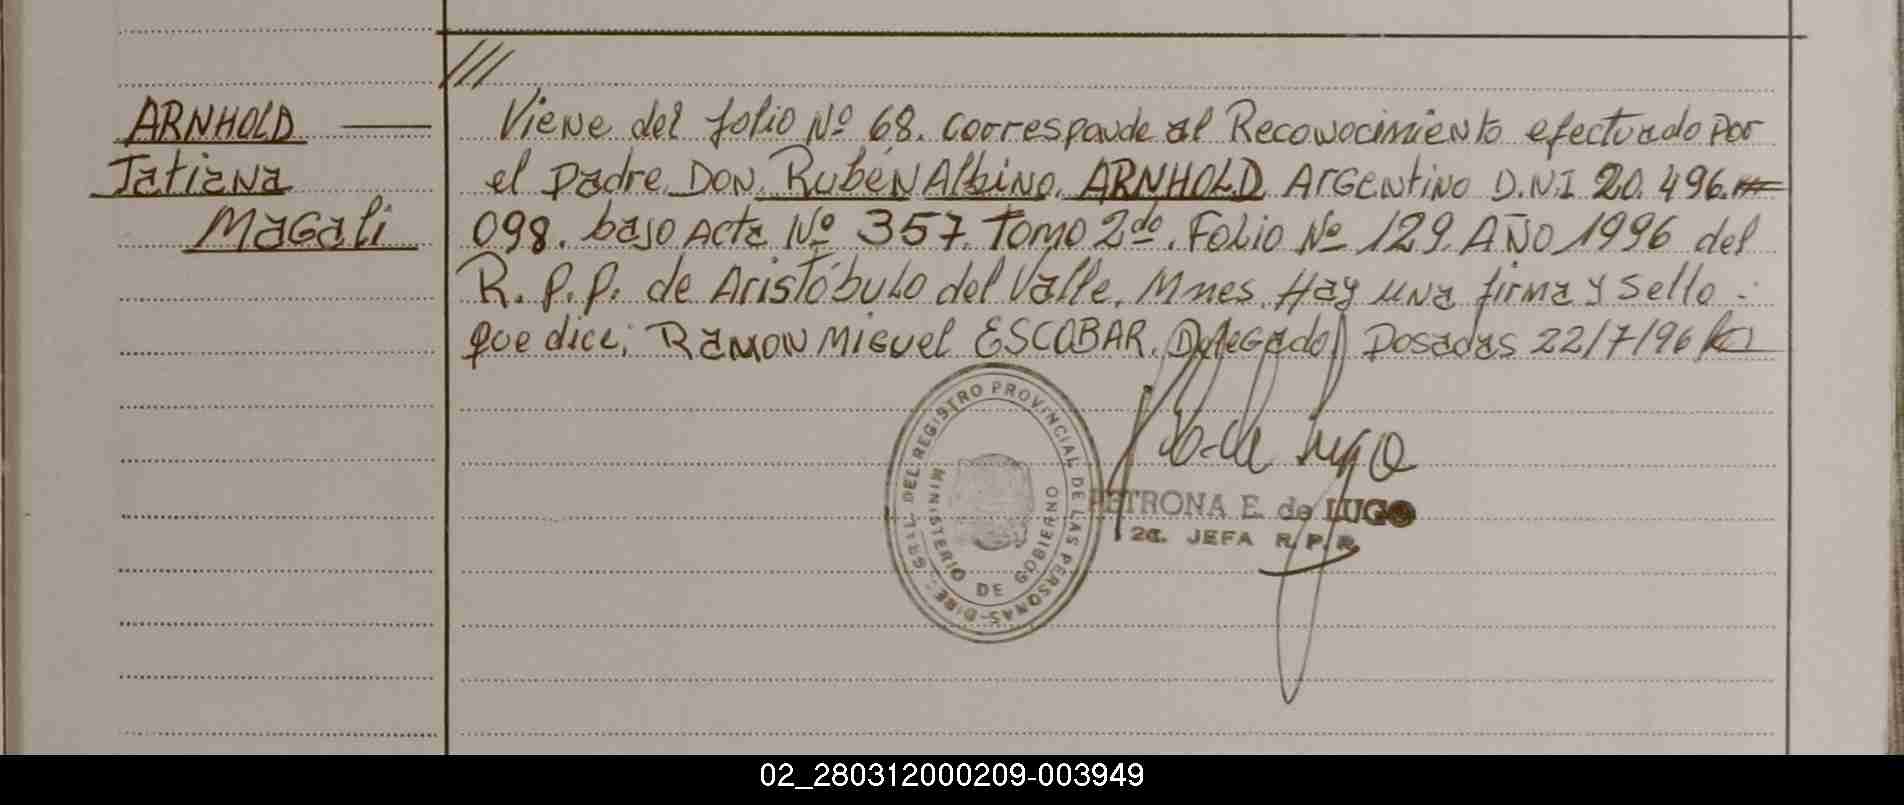 ///
ARNHOLD —
Tatiana
Magali
Viene del folio Nº 68. Corresponde al Reconocimiento efectuado por
el padre Don. Rubén Albino. ARNHOLD Argentino D.N.I 20.496.
098. bajo Acta Nº 357. Tomo 2do. Folio Nº 129. AÑO 1996 del
R. P. P. de Aristóbulo del Valle. Mnes. Hay una firma y sello -
que dice; Ramon Miguel ESCOBAR. Delegado. Posadas 22/7/96
DEL REGISTRO PROVINCIAL DE LAS PERSONAS-DIRE
MINISTERIO DE GOBIERNO
de Lugo
PETRONA E. de LUGO
2a. JEFA R.P.P.
02_280312000209-003949